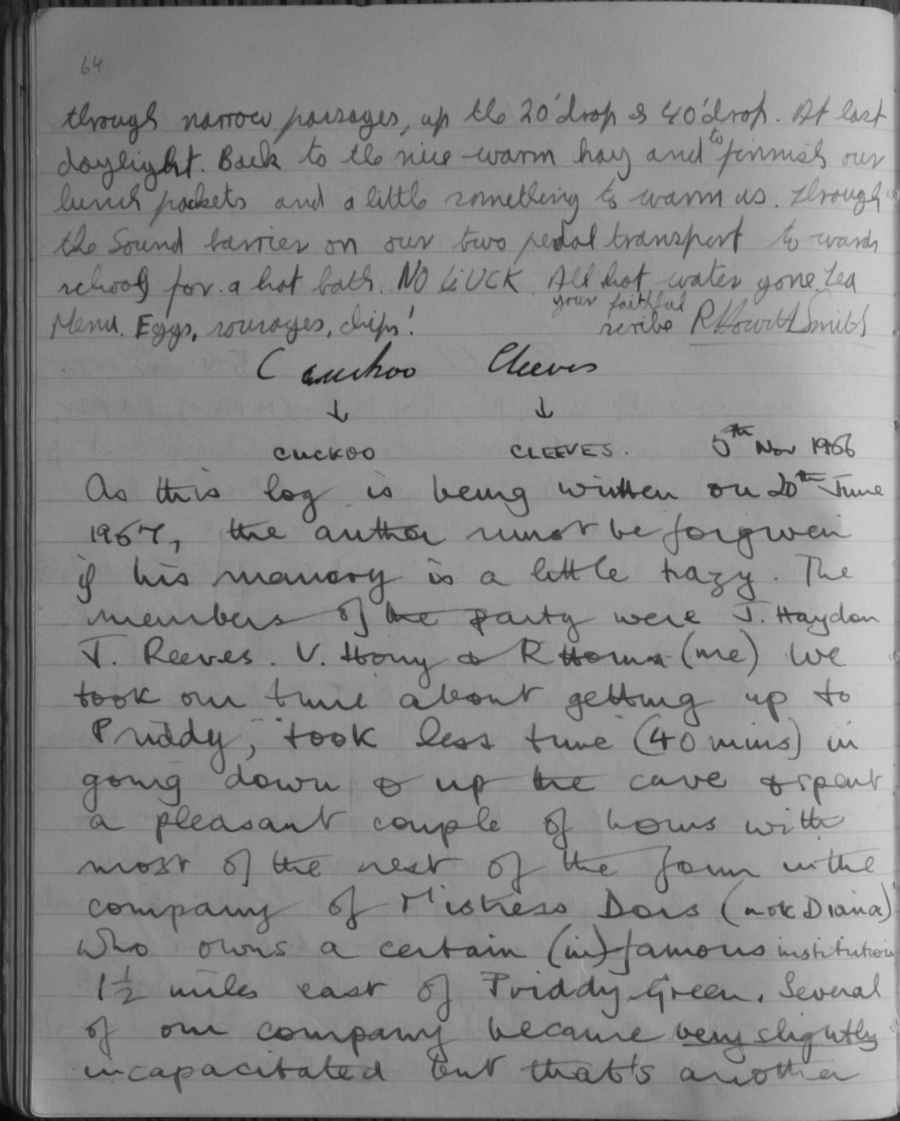 64
through narrow passages, up the 20' drop & 40' drop. At last
daylight. Back to the nice warm hay and to finnish our
lunch packets and a little something to warm us. Through
the Sound barrier on our two pedal transport towards
school for a hot bath. NO LUCK. All hot water gone. Tea
Menu. Eggs, sourages, chips! your faithful
scribe R Howitt Smith
Cuckoo Cleeves
↓ ↓
CUCKOO CLEEVES. 5th Nov 1966
As this log is being written on 20th June
1967, the author must be forgiven
if his memory is a little hazy. The
members of the party were J. Haydon
J. Reeves. V. Hony & R (me) We
took our time about getting up to
Priddy, took less time (40 mins) in
going down & up the cave & spent
a pleasant couple of hours with
most of the rest of the form in the
company of Mistress Dors (not Diana)
who owns a certain (in)famous institution
1½ miles east of Priddy Green. Several
of our company became very slightly
incapacitated but that's another